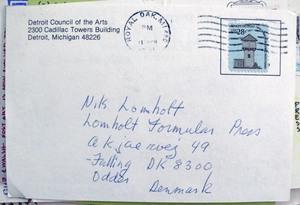 Detroit Council of the Arts
2300 Cadillac Towers Building
Detroit, Michigan 48226
ROYAL OAK, MI
PM
28c
Nik Lomholt
Lomholt Formular Press
akjaervej 49
Falling DK 8300
Odder
Denmark